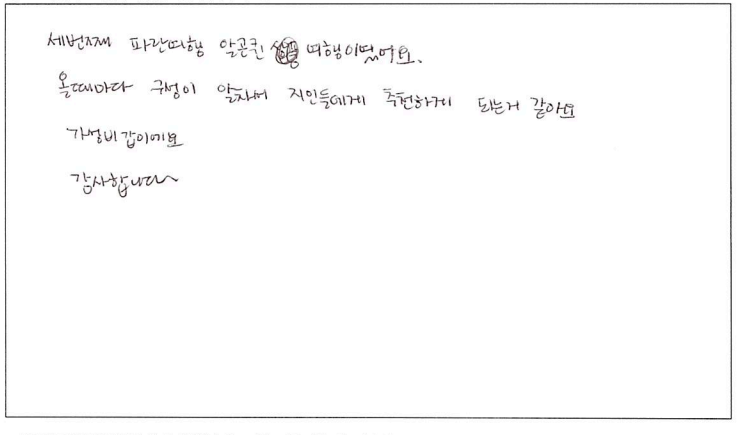 세번째 파란여행 알곤퀸 여행이었어요.
올때마다 구성이 알차서 지인들에게 추천하게 되는거 같아요
가성비 갑이에요
감사합니다~